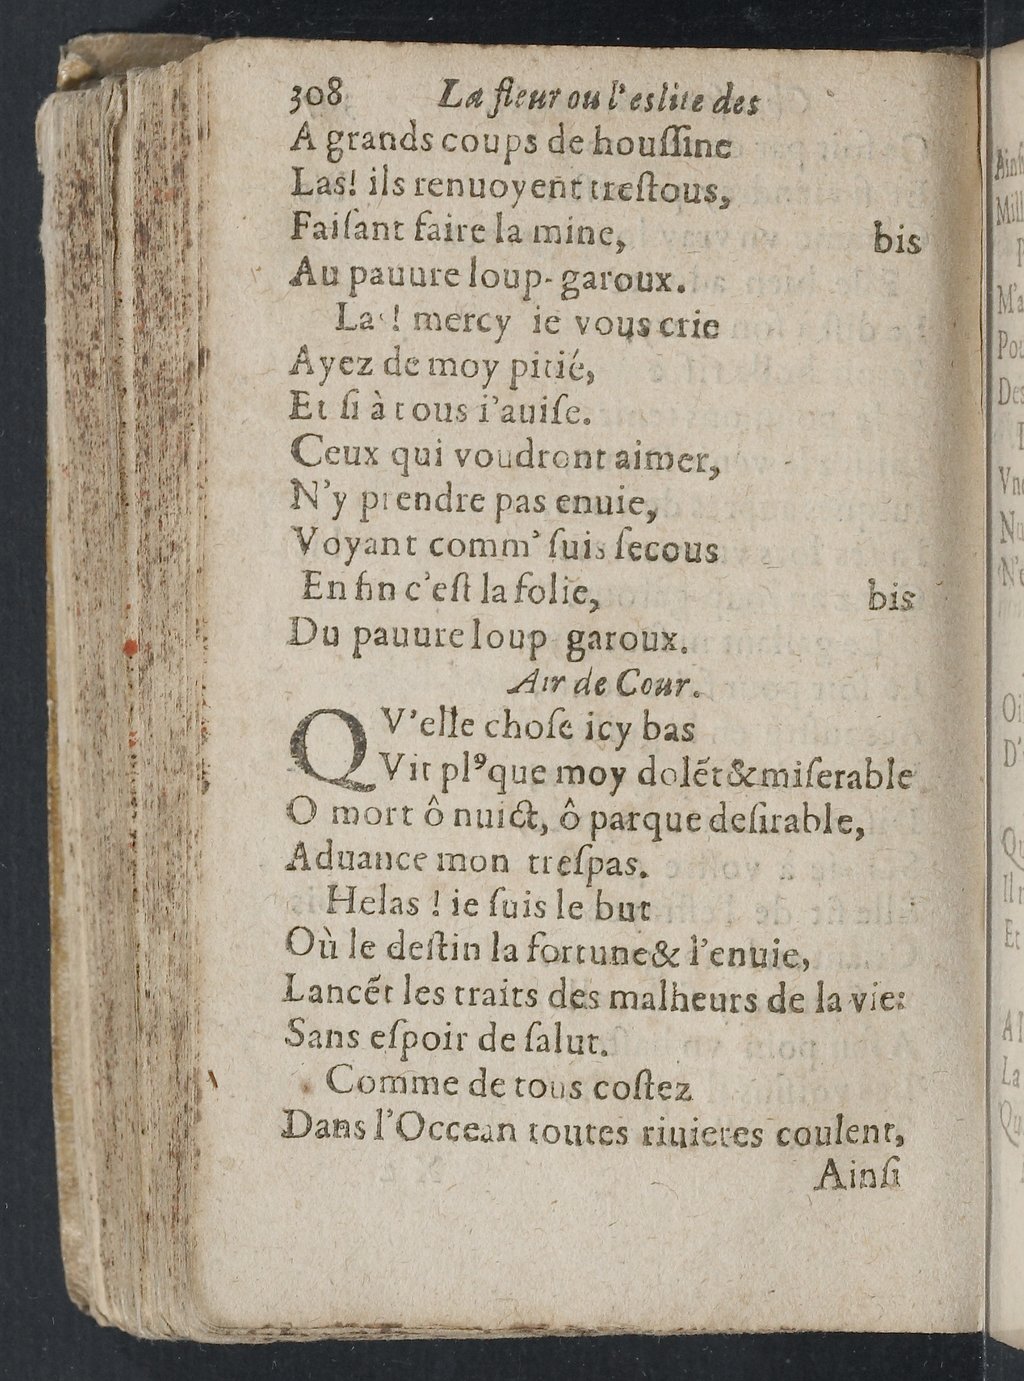 308 La fleur ou l'eslite des
A grands coups de houſſine
Las! ils renuoyent treſtous,
Faiſant faire la mine, bis
Au pauure loup-garoux.
La ! mercy ie vous crie
Ayez de moy pitié,
Et ſi à tous i'auiſe.
Ceux qui voudront aimer,
N'y prendre pas enuie,
Voyant comm' ſuis ſecous
En fin c'eſt la folie, bis
Du pauure loup garoux.
Air de Cour.
QV'elle choſe icy bas
Vit plꝰque moy dolẽt&miſerable
O mort ô nuict, ô parque deſirable,
Aduance mon treſpas.
Helas ! ie ſuis le but
Où le deſtin la fortune& l'enuie,
Lancẽt les traits des malheurs de la vie:
Sans eſpoir de ſalut.
Comme de tous coſtez
Dans l'Occean toutes riuieres coulent,
Ainſi